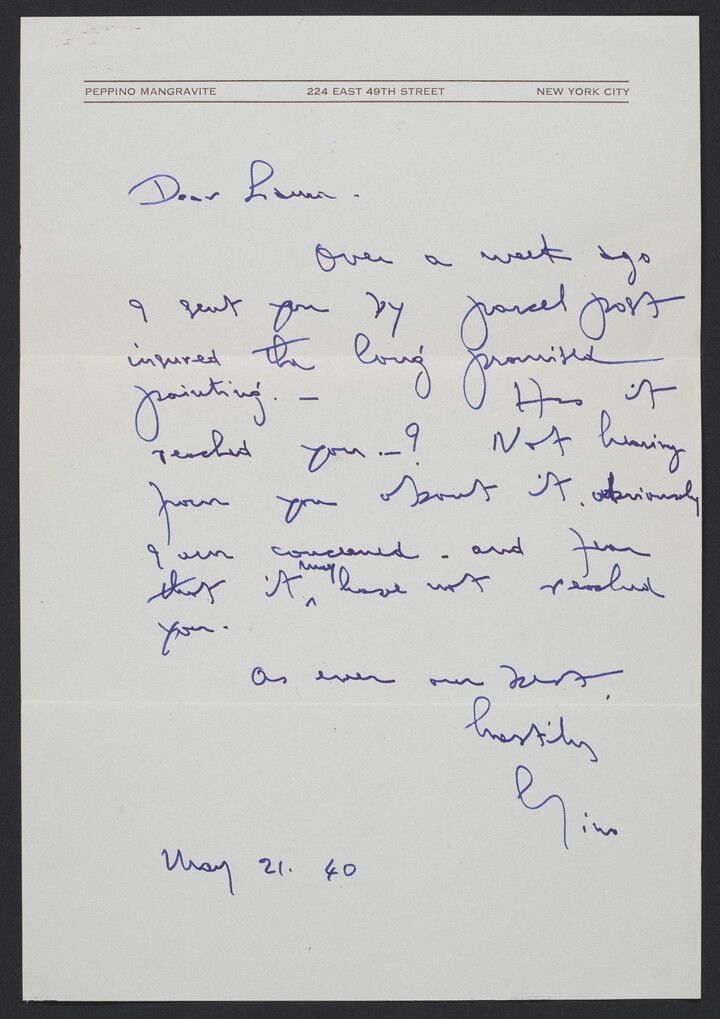 PEPPINO MANGRAVITE 224 EAST 49TH STREET NEW YORK CITY
Dear
Over a week ago
I sent you by parcel post
insured the long promised
painting. —
Has it
reached you. —? Not hearing
from you about it, obviously
I am concerned - and fear
that it may have not reached
you.
As ever our best,
hastily
Gino
May 21. 40